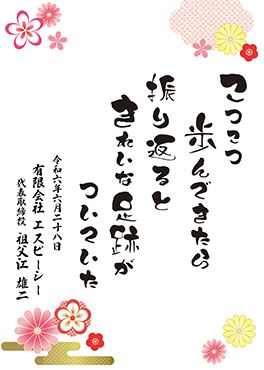 こつこつ
歩んできたら
振り返ると
きれいな足跡が
ついていた
令和六年六月二十八日
有限会社 エスピーシー
代表取締役 祖父江 雄二